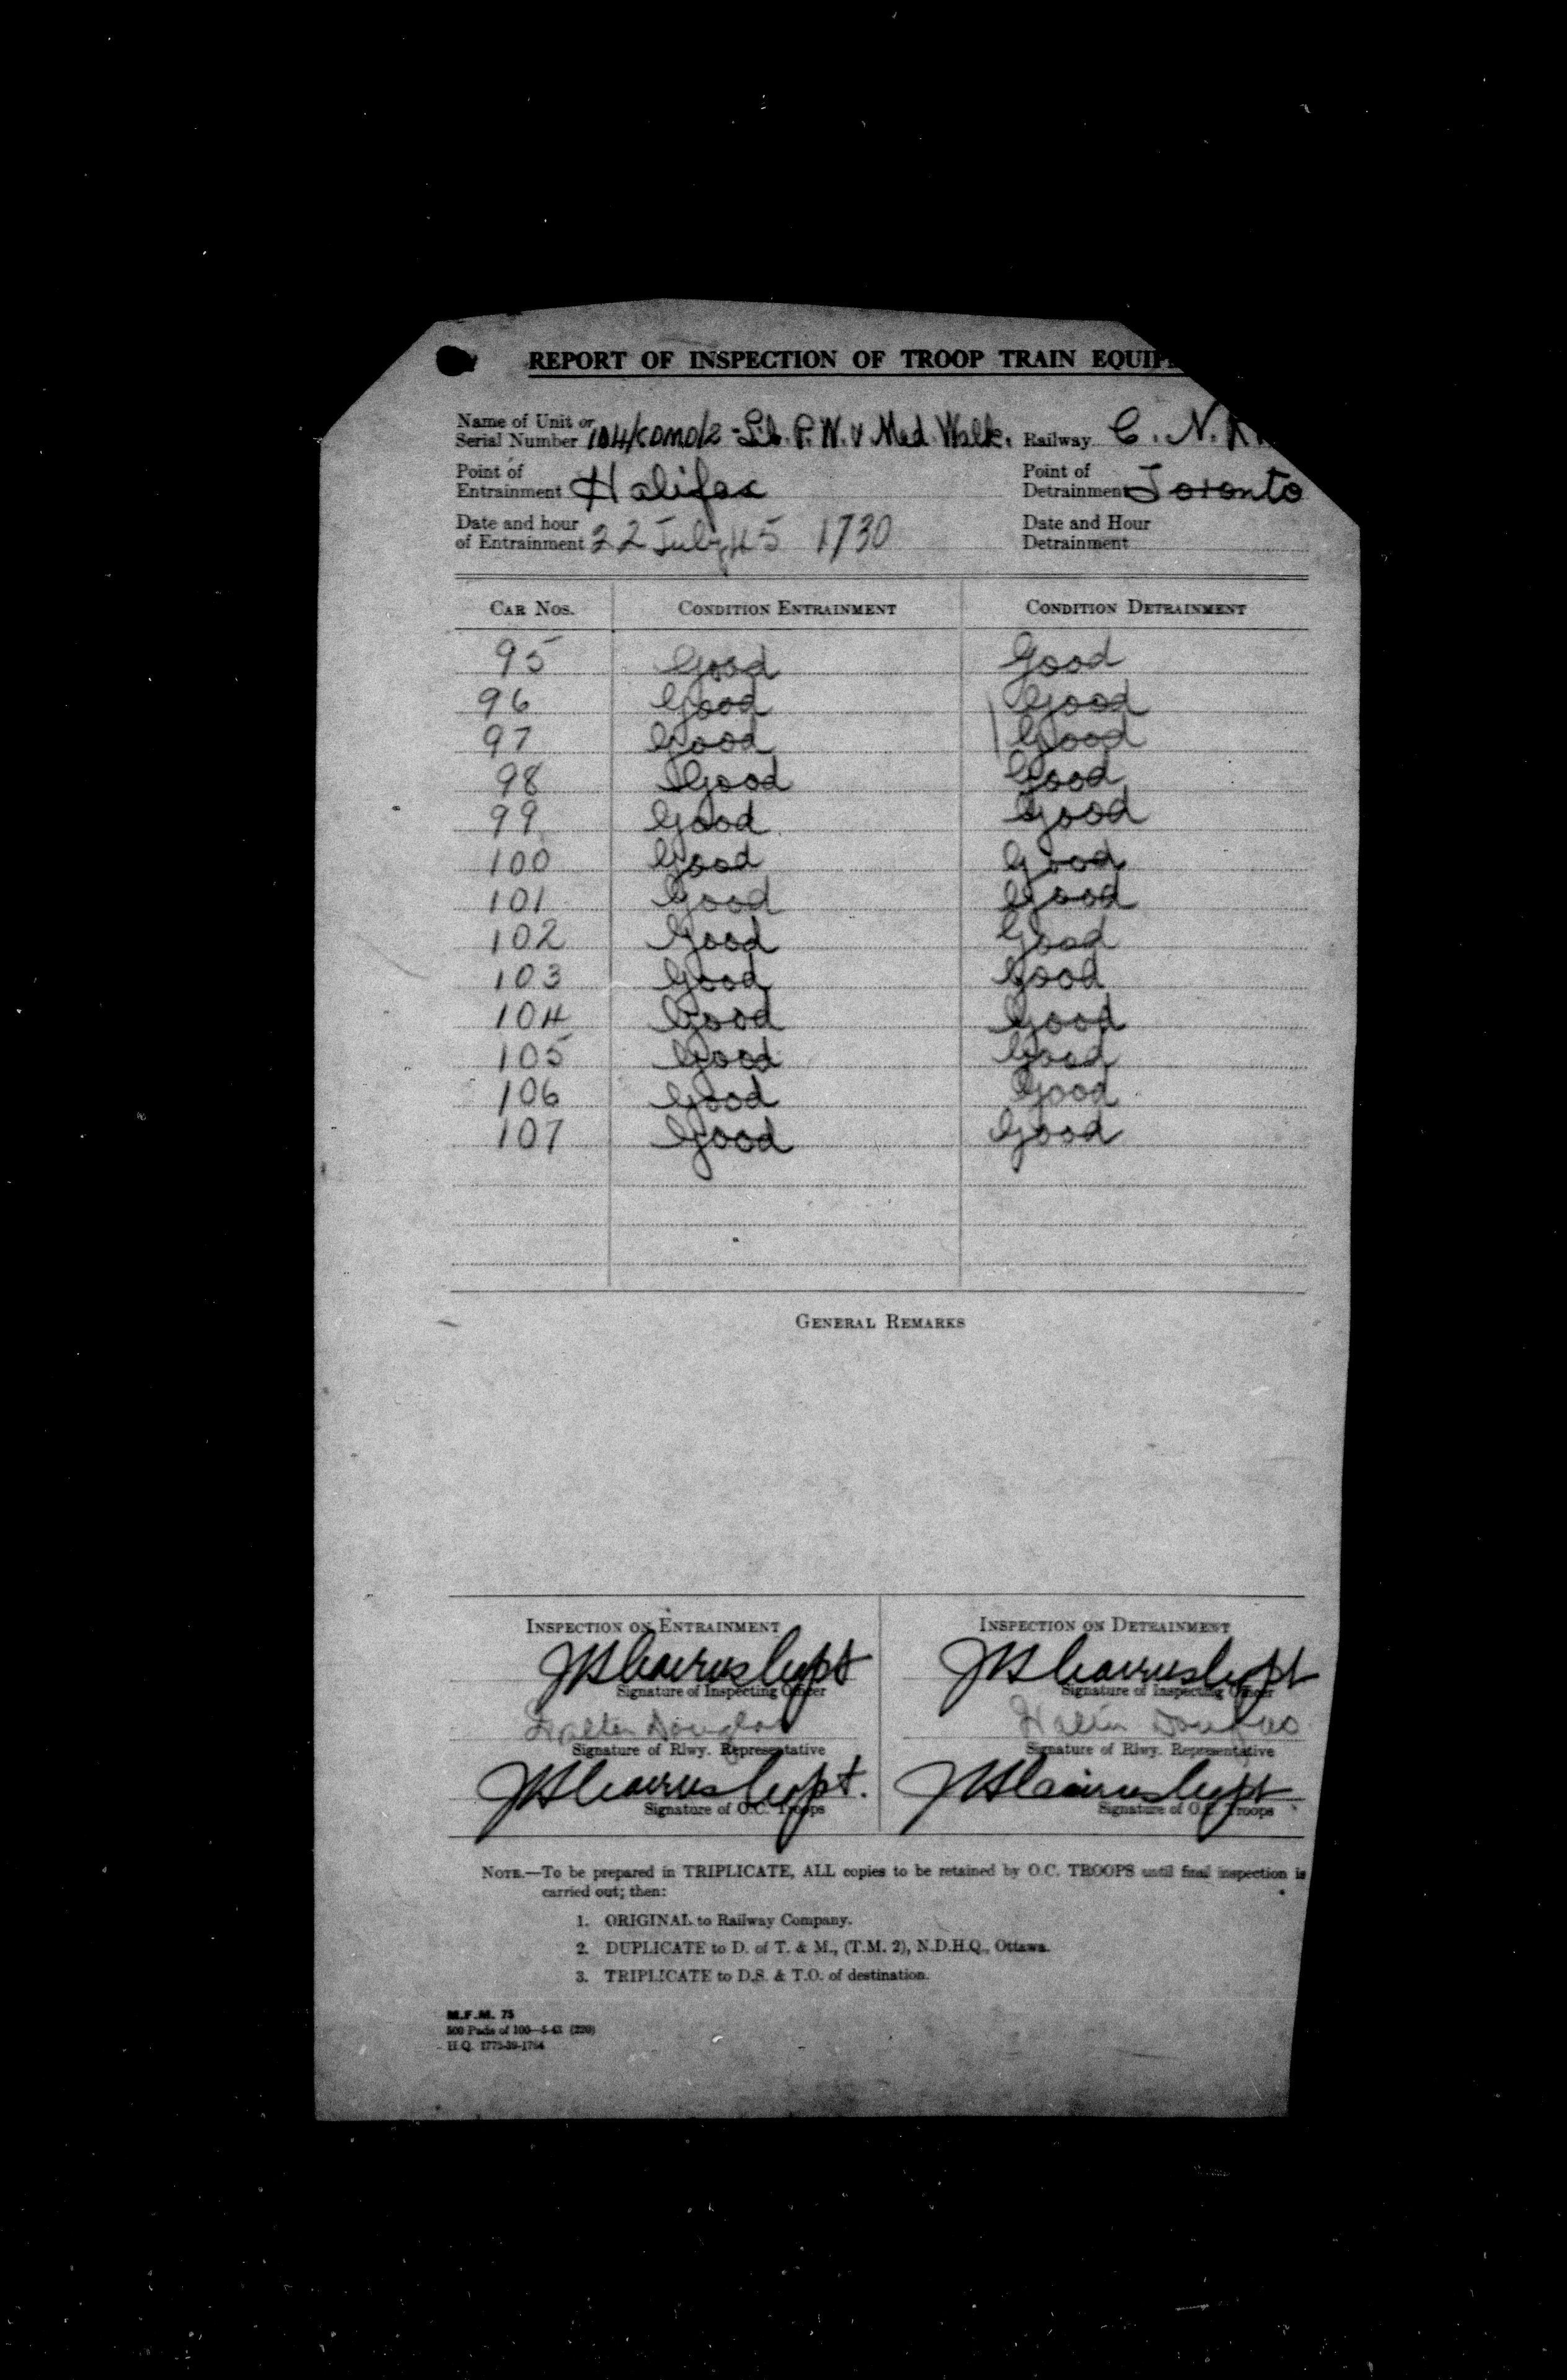 REPORT OF INSPECTION OF TROOP TRAIN
Name of Unit or
Serial Number Lib. P.W. v Med. Walk. Railway C. N.
Point of Entrainment Halifax Point of Detrainment Toronto
Date and hour of Entrainment 22 July 45 1730 Date and Hour Detrainment
CAR NOS. CONDITION ENTRAINMENT CONDITION DETRAINMENT
95 Good Good
96 Good Good
97 Good Good
98 Good Good
99 Good Good
100 Good Good
101 Good Good
102 Good Good
103 Good Good
104 Good Good
105 Good Good
106 Good Good
107 Good Good
GENERAL REMARKS
INSPECTION ON ENTRAINMENT INSPECTION ON DETRAINMENT
JH Cairns Capt JH Cairns Capt
Signature of Inspecting Officer Signature of Inspecting Officer
Walter Douglas Walter Douglas
Signature of Rlwy. Representative Signature of Rlwy. Representative
JH Cairns Capt. JH Cairns Capt
Signature of O.C. Troops Signature of O.C. Troops
NOTE.—To be prepared in TRIPLICATE, ALL copies to be retained by O.C. TROOPS until final inspection is
carried out; then:
1. ORIGINAL to Railway Company.
2. DUPLICATE to D. of T. & M., (T.M. 2), N.D.H.Q., Ottawa.
3. TRIPLICATE to D.S. & T.O. of destination.
M.F.M. 75
500 Pads of 100
H.Q. 1772-39-1764